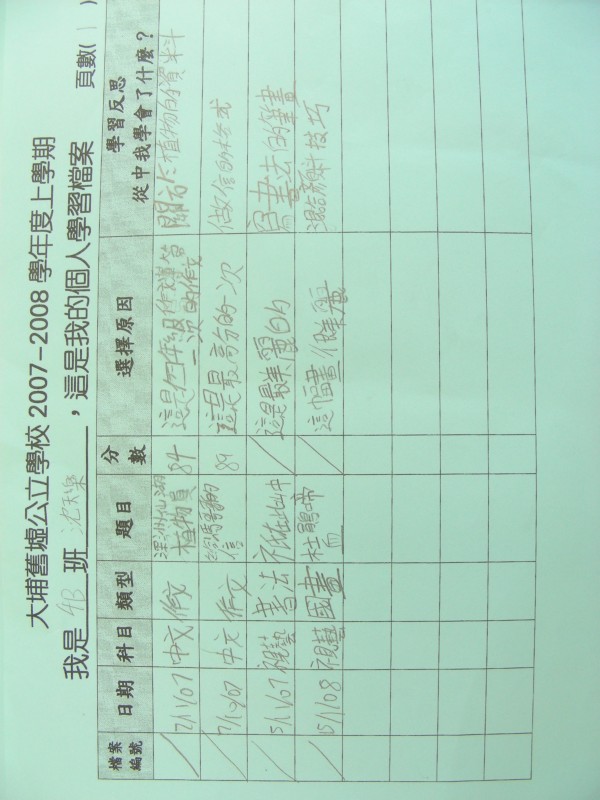 大埔舊墟公立學校 2007-2008 學年度上學期
我是 4B 班，這是我的個人學習檔案 頁數( 1 )
檔案編號 日期 科目 類型 題目 分數 選擇原因 學習反思 從中我學會了什麼？
2/11/07 中文 作文 植物園 84 這是四年級 第一次的作文 關於植物的資料
7/12/07 中文 作文 信 89 這是最高分的一次 做信的格式
15/11/07 視藝 書法 這是最美麗的 寫書法的筆畫
15/1/08 視藝 國畫 杜鵑啼血 這幅畫很美麗 混合顏料技巧